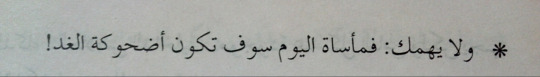 * ولا يهمك: فمأساة اليوم سوف تكون أضحوكة الغد!